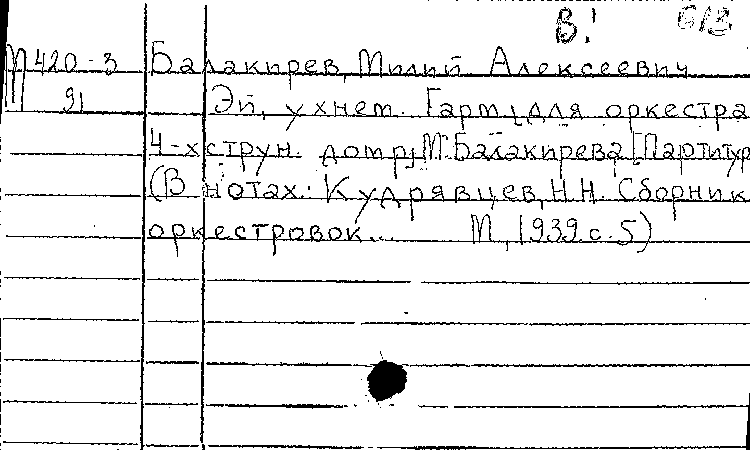 В! 613
М 420-3 Балакирев, Милий Алексеевич
91 Эй, ухнем. Гарм. для оркестра
4-х струн. домр, М. Балакирева [Партитур
(В нотах: Кудрявцев, Н.Н. Сборник
оркестровок... М., 1939. с. 5)